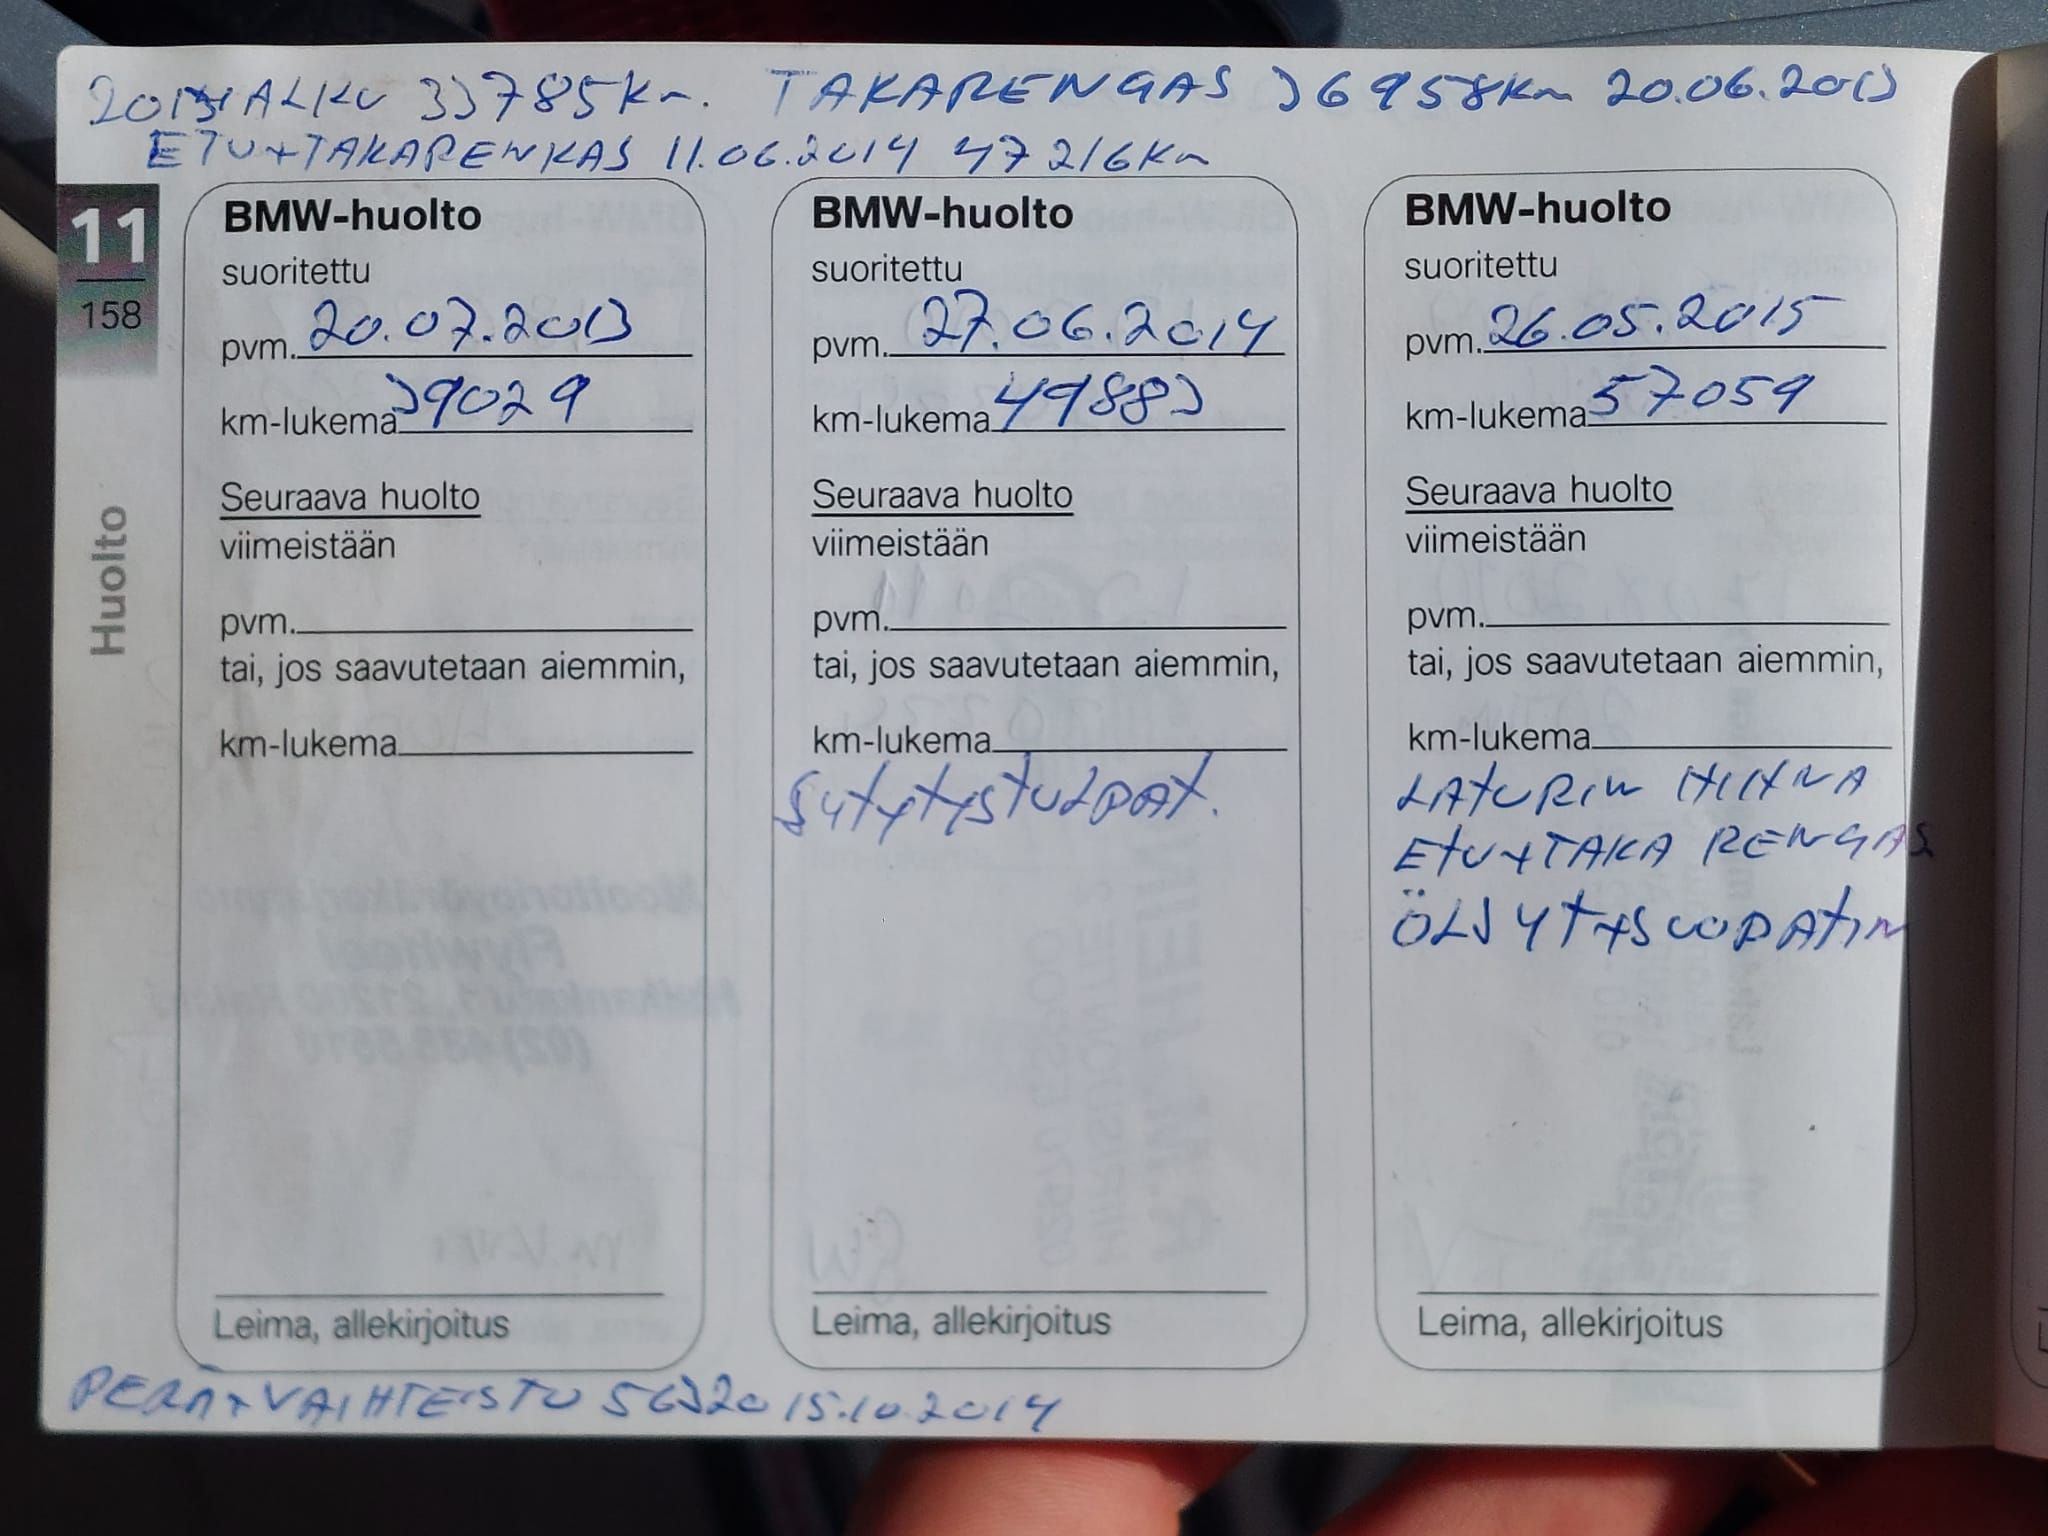 2013 ALKU 33785Km. TAKARENGAS 36958Km 20.06.2013
ETU+TAKARENKAS 11.06.2014 47216Km
11
158
Huolto
BMW-huolto
suoritettu
pvm. 20.07.2013
km-lukema 39029
Seuraava huolto
viimeistään
pvm.
tai, jos saavutetaan aiemmin,
km-lukema
Leima, allekirjoitus
BMW-huolto
suoritettu
pvm. 27.06.2014
km-lukema 49883
Seuraava huolto
viimeistään
pvm.
tai, jos saavutetaan aiemmin,
km-lukema
SYTYTYSTULPAT.
Leima, allekirjoitus
BMW-huolto
suoritettu
pvm. 26.05.2015
km-lukema 57059
Seuraava huolto
viimeistään
pvm.
tai, jos saavutetaan aiemmin,
km-lukema
LATURIN HIHNA
ETU+TAKA RENGAS
ÖLJYT+SUODATIN
Leima, allekirjoitus
PERÄ+VAIHTEISTO 56320 15.10.2014